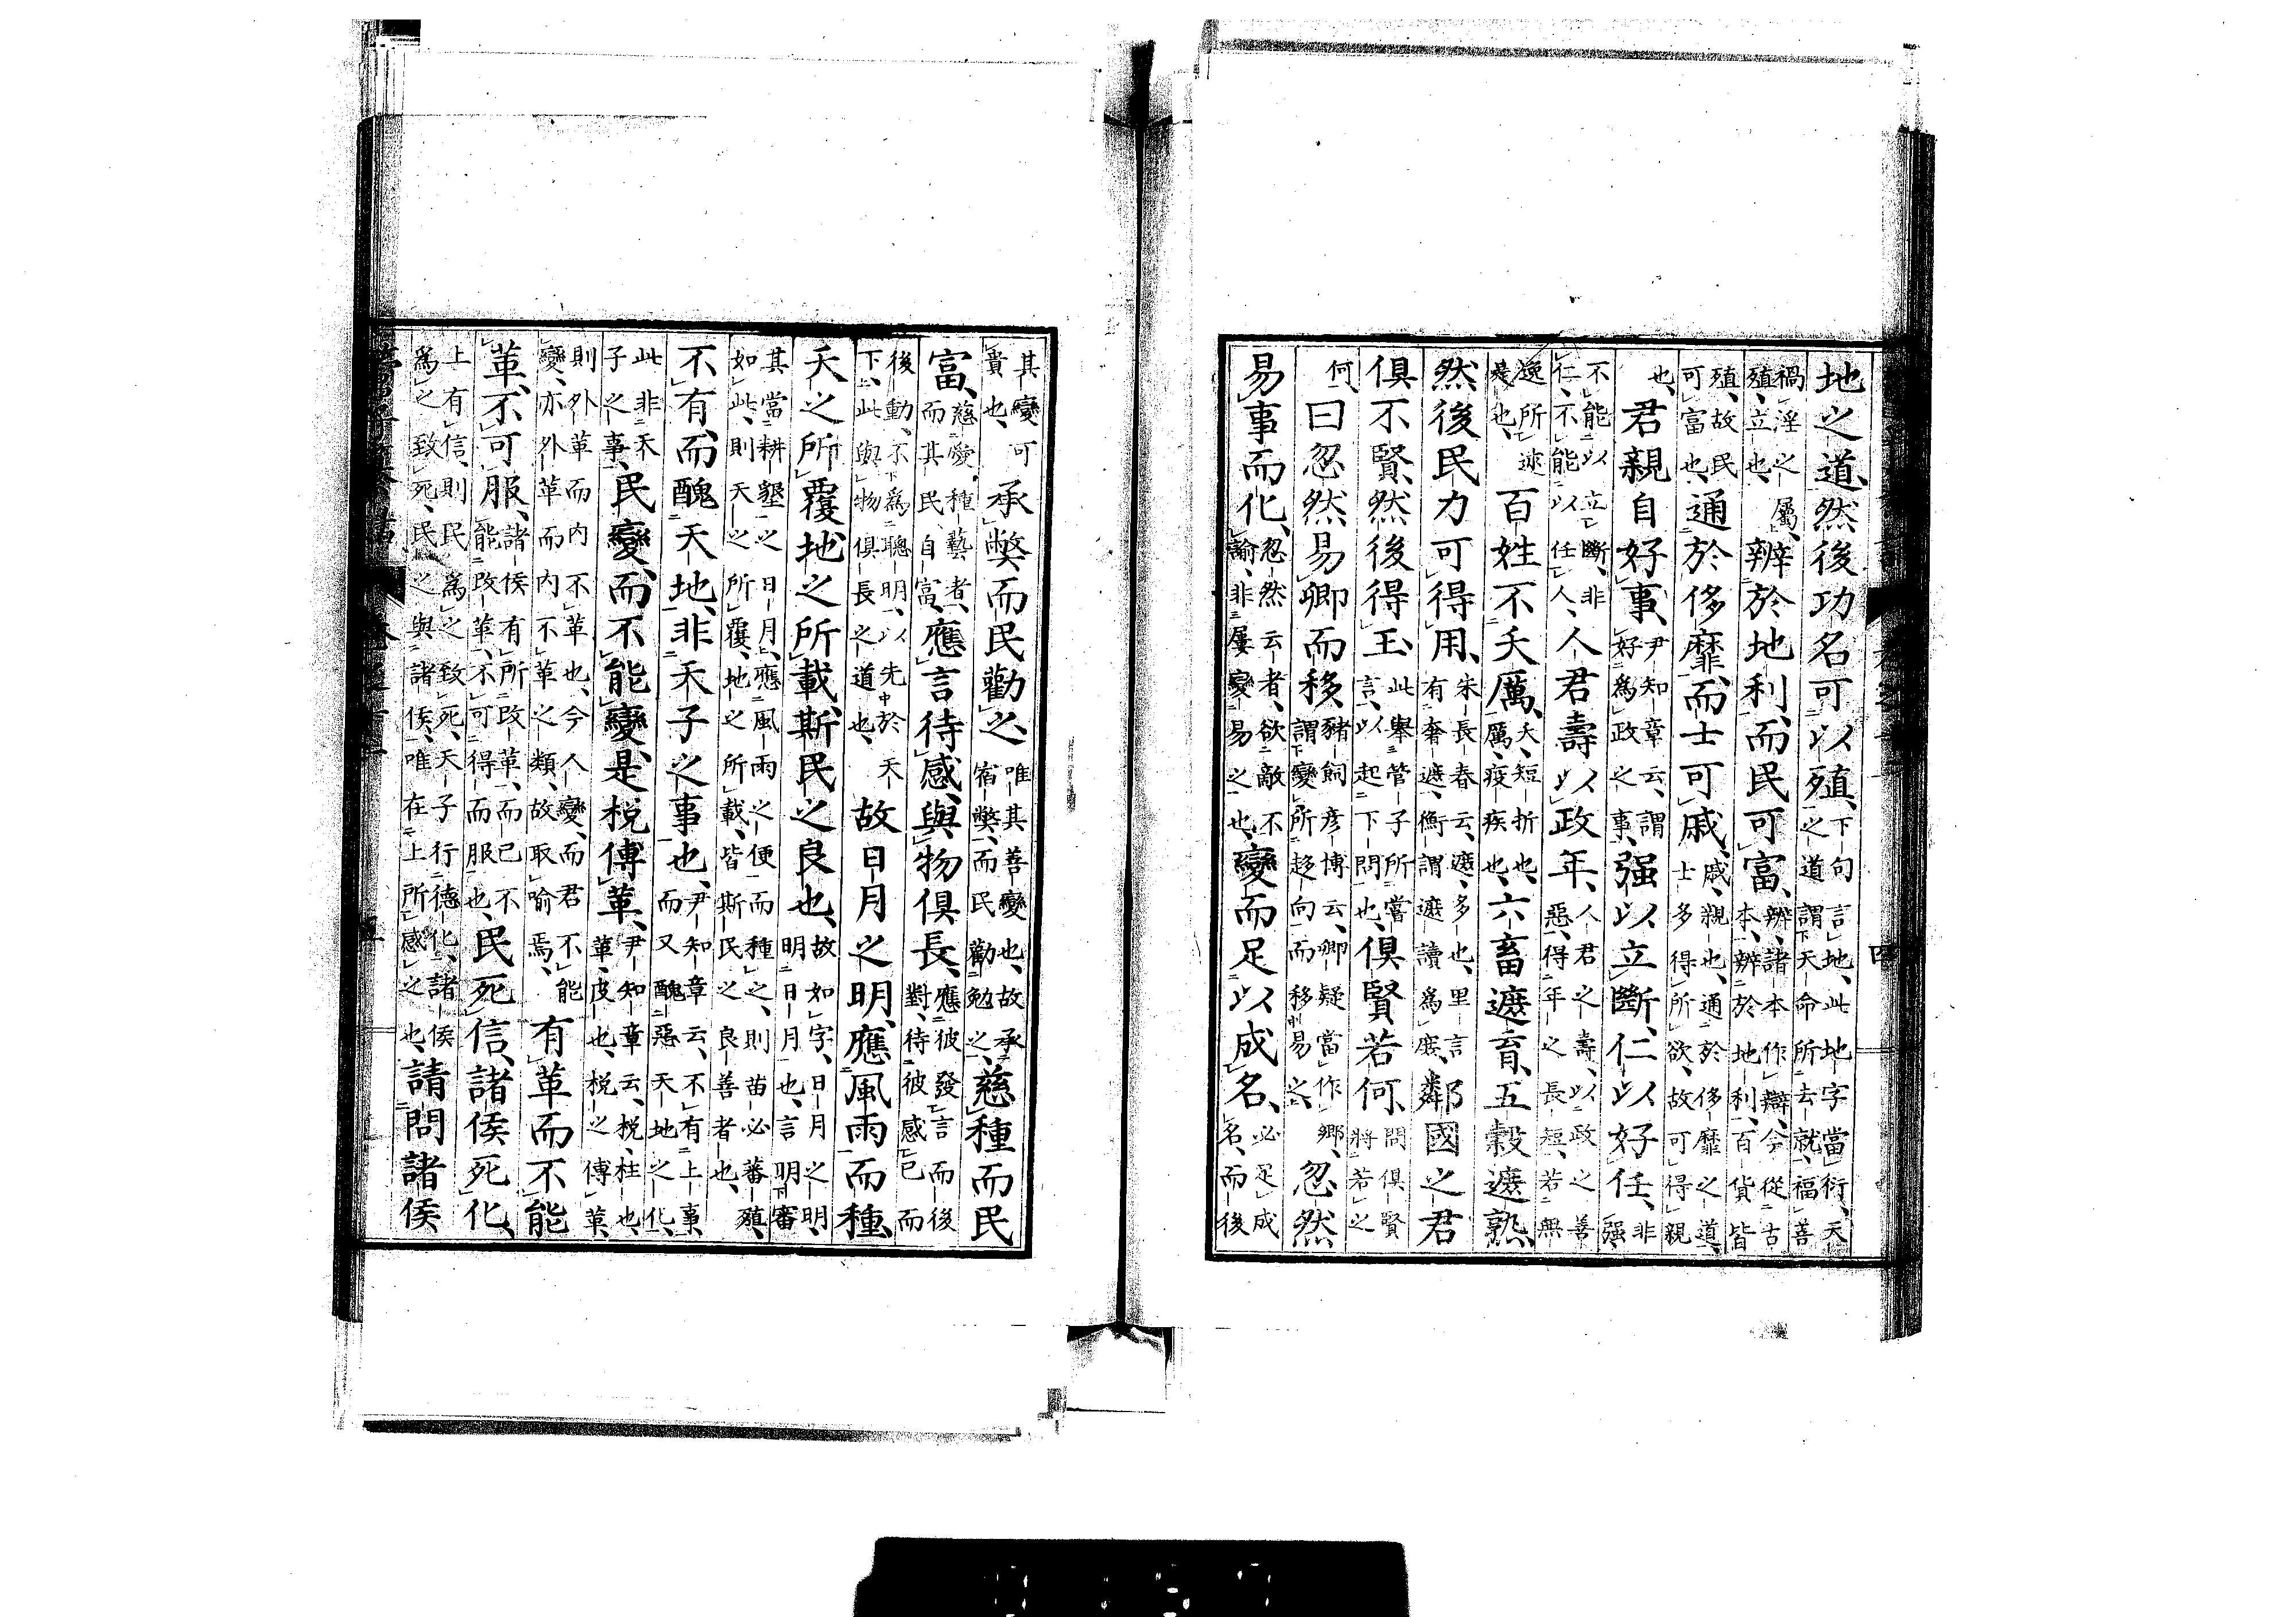 地之道、然後功名可以殖、下句言地、此地字當衍、天之道謂天命所去就、福善
禍淫之屬、殖、立也、辨於地利、而民可富、辨、諸本作辯、今從古本、辨於地利、百貨皆
殖、故民可富也、通於侈靡、而士可戚、戚、親也、通於侈靡之道、士多得所欲、故可得親
也、君親自好事、尹知章云、謂好爲政之事、强以立斷、仁以好任、非强、
不能以立斷、非仁、不能以任人、人君壽以政年、人君之壽、以政之善惡、得年之長短、若無
逸所述是也、百姓不夭厲、夭、短折也、厲、疫疾也、六畜遮育、五穀遮熟、
然後民力可得用、朱長春云、遮、多也、里言有奢遮、衡謂遮讀爲庶、鄰國之君
俱不賢、然後得王、此舉管子所嘗言、以起下問也、俱賢若何、問俱賢將若之
何、曰忽然易卿而移、豬飼彦博云、卿疑當作鄉、謂變所趍向而移易之、忽然
易事而化、忽然云者、欲敵不諭、非屢變易之也、變而足以成名、必足成名、而後
其變可貴也、承弊而民勸之、唯其善變也、故承宿弊、而民勸勉之、慈種而民
富、慈愛種藝者、而其民自富、應言待感、與物俱長、應彼發言而後對、待彼感已而
後動、不爲聰明、以先於天下、此與物俱長之道也、故日月之明、應風雨而種、
天之所覆、地之所載、斯民之良也、故如字、日月之明、明日月也、言明審
其當耕墾之日月、應風雨之便而種之、則苗必蕃殖、如此、則天之所覆、地之所載、皆斯民之良善者也、
不有而醜天地、非天子之事也、尹知章云、不有上事、而又醜惡天地之化、
此非天子之事、民變而不能變、是梲傅革、尹知章云、梲、柱也、革、皮也、梲之傅革、
則外革而内不革也、今人變、而君不能變、亦外革而内不革之類、故取喻焉、有革而不能
革、不可服、諸侯有所改革、而己不能改革、不可得而服也、民死信、諸侯死化、
上有信、則民爲之致死、天子行德化、諸侯爲之致死、民之與諸侯、唯在上所感之也、請問諸侯